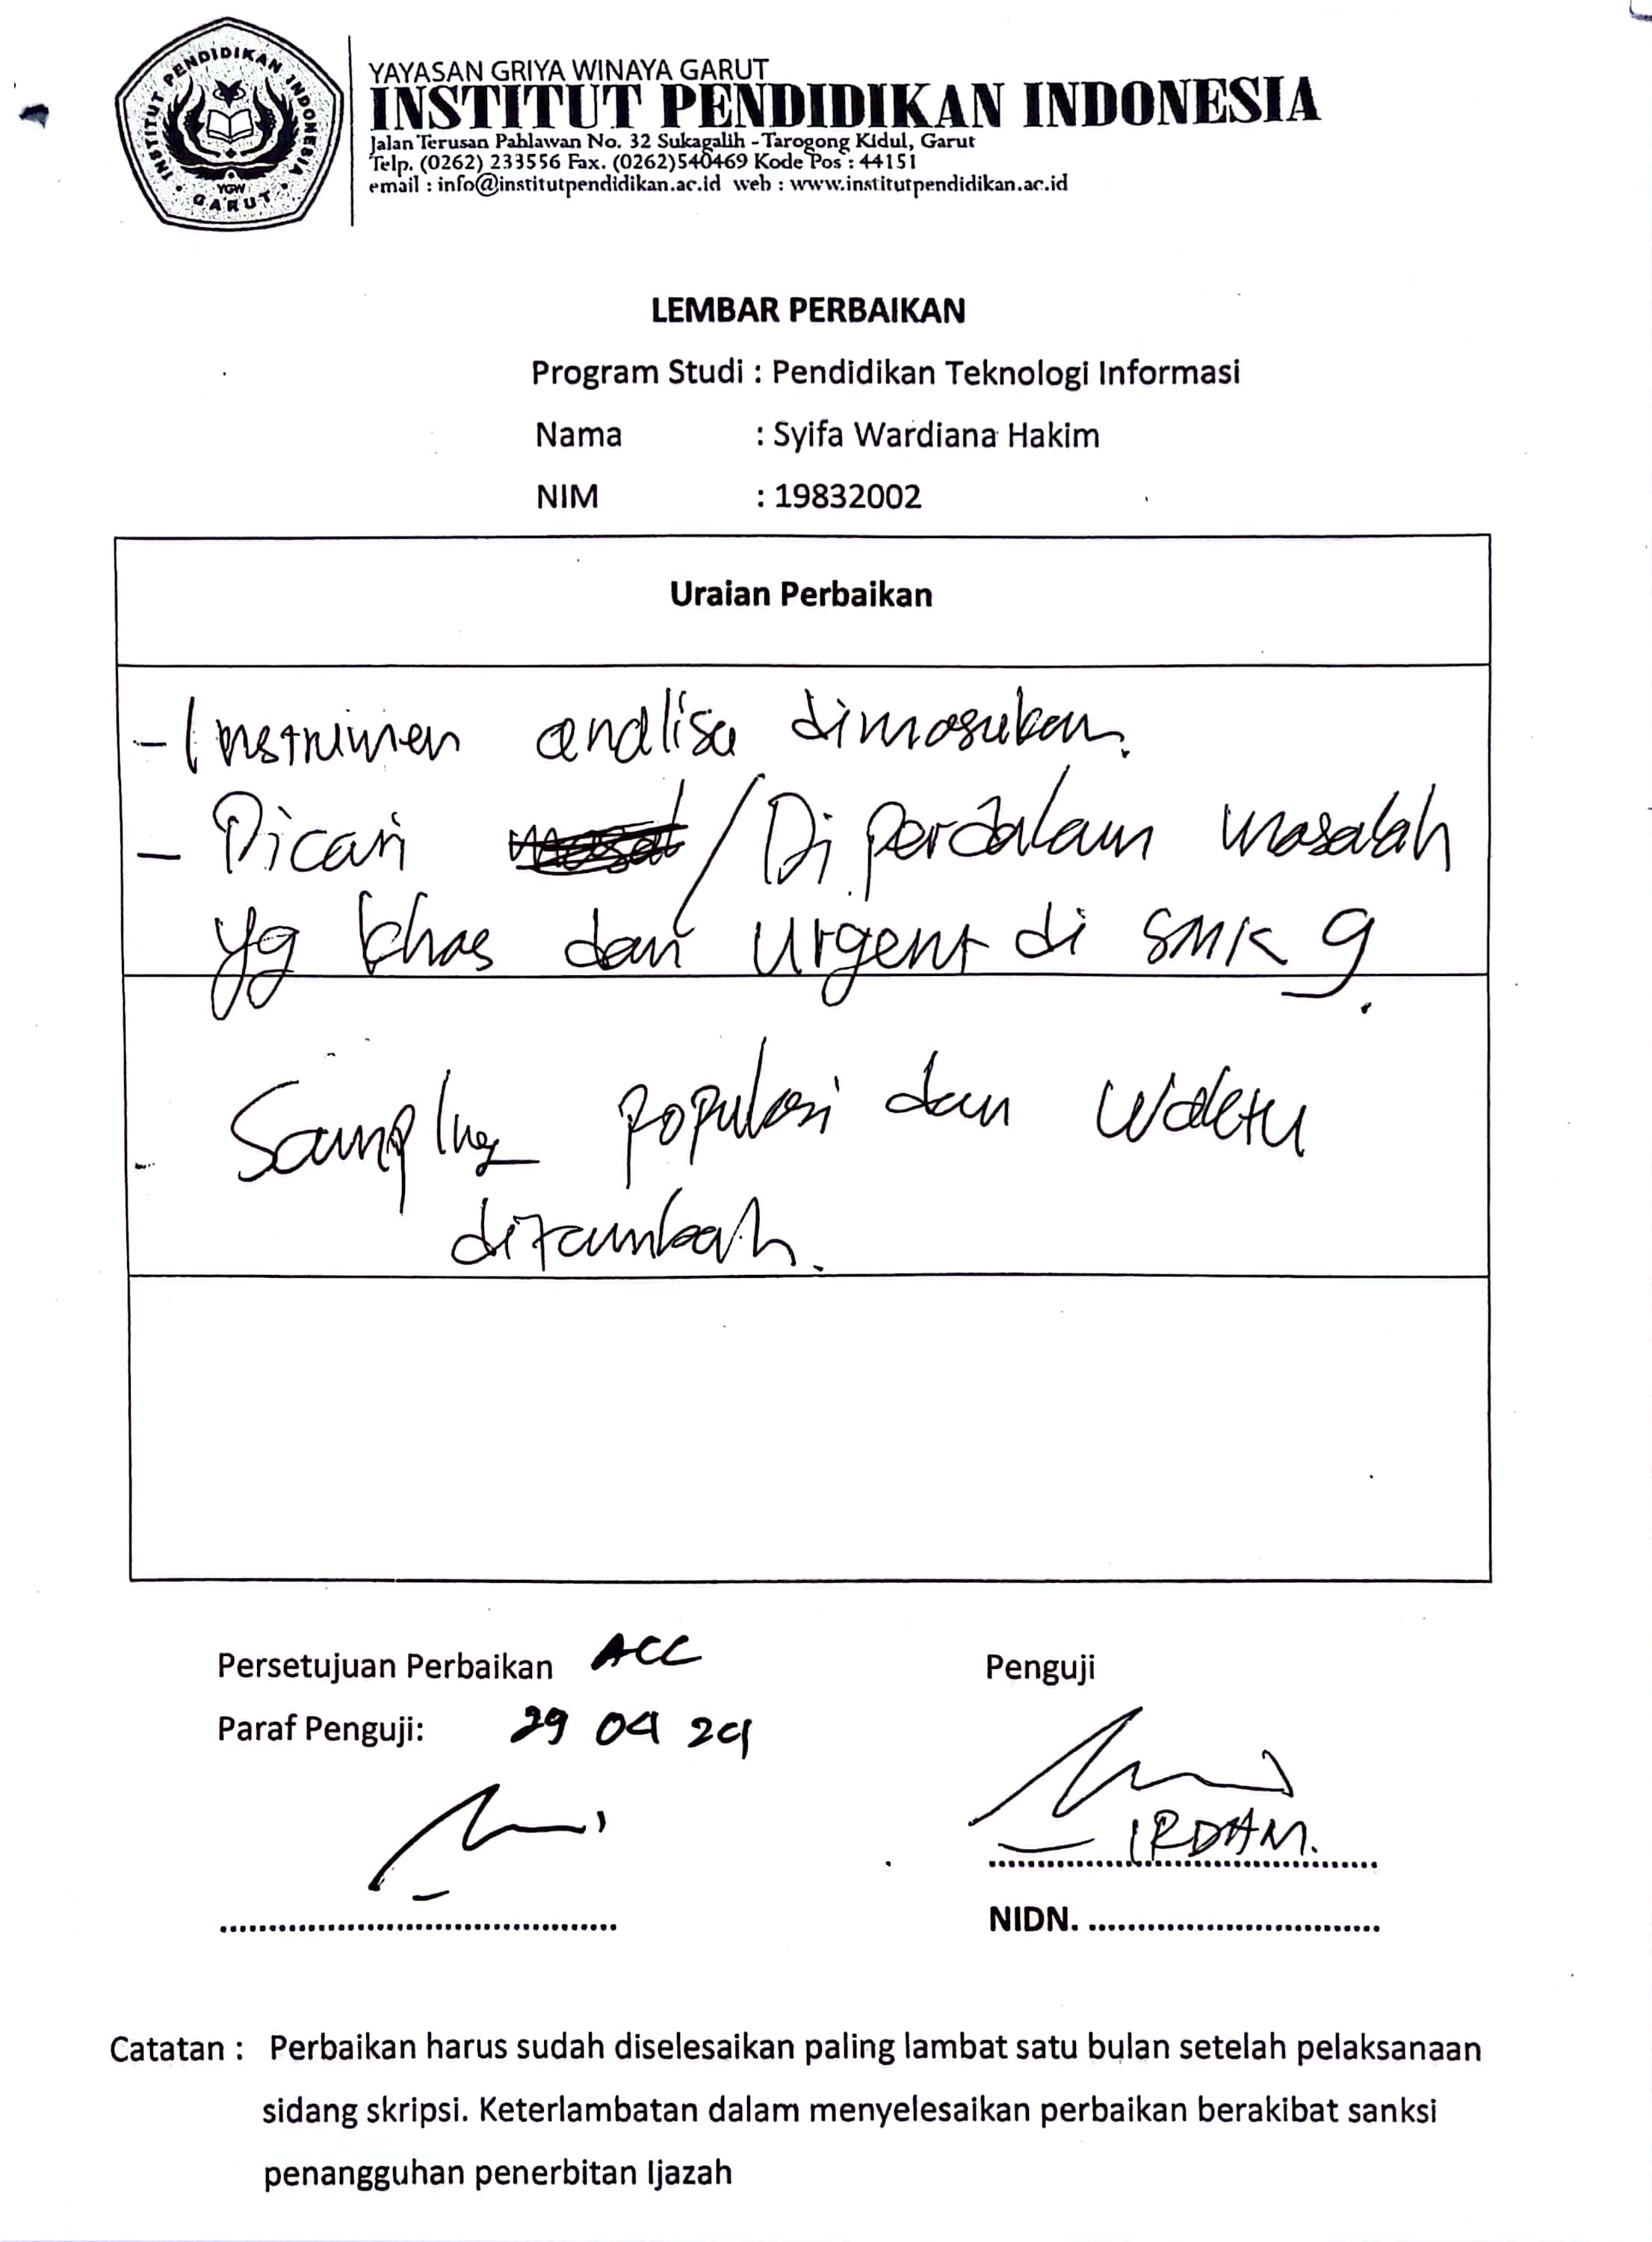 INSTITUT PENDIDIKAN INDONESIA
YGW
GARUT
YAYASAN GRIYA WINAYA GARUT
INSTITUT PENDIDIKAN INDONESIA
Jalan Terusan Pahlawan No. 32 Sukagalih - Tarogong Kidul, Garut
Telp. (0262) 233556 Fax. (0262)540469 Kode Pos : 44151
email : info@institutpendidikan.ac.id web : www.institutpendidikan.ac.id
LEMBAR PERBAIKAN
Program Studi : Pendidikan Teknologi Informasi
Nama : Syifa Wardiana Hakim
NIM : 19832002
Uraian Perbaikan
- Instrumen analisa dimasukan.
- Dicari / Di perdalam masalah
yg khas dan urgent di SMK 9.
- Sampling populasi dan waktu
ditambah.
Persetujuan Perbaikan ACC
Penguji
Paraf Penguji: 29 04 24
IRDAM.
NIDN. ..............................
Catatan : Perbaikan harus sudah diselesaikan paling lambat satu bulan setelah pelaksanaan
sidang skripsi. Keterlambatan dalam menyelesaikan perbaikan berakibat sanksi
penangguhan penerbitan Ijazah